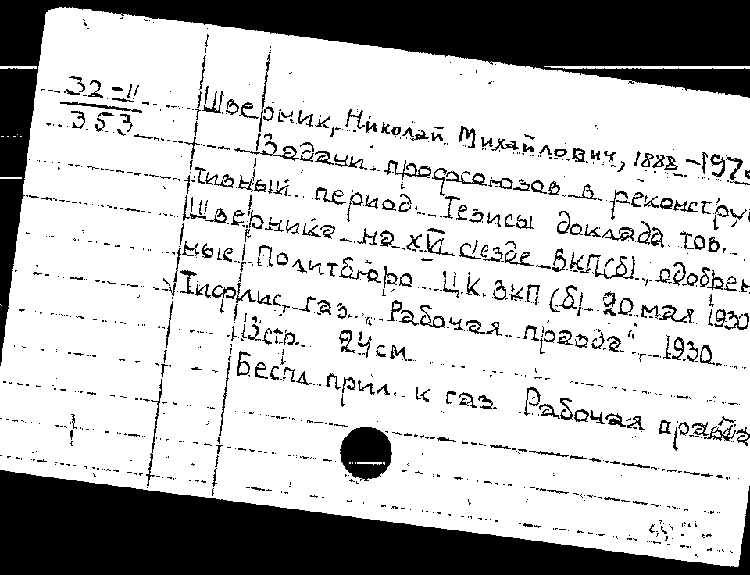 32-11
353
Шверник, Николай Михайлович, 1888-197
Задачи профсоюзов в реконстру
тивный период. Тезисы доклада тов.
Шверника на XVI съезде ВКП(б), одобрен
ные Политбюро ЦК ВКП(б) 20 мая 1930
Тифлис, газ. "Рабочая правда", 1930
13 стр. 24 см
Беспл. прил. к газ. Рабочая правда